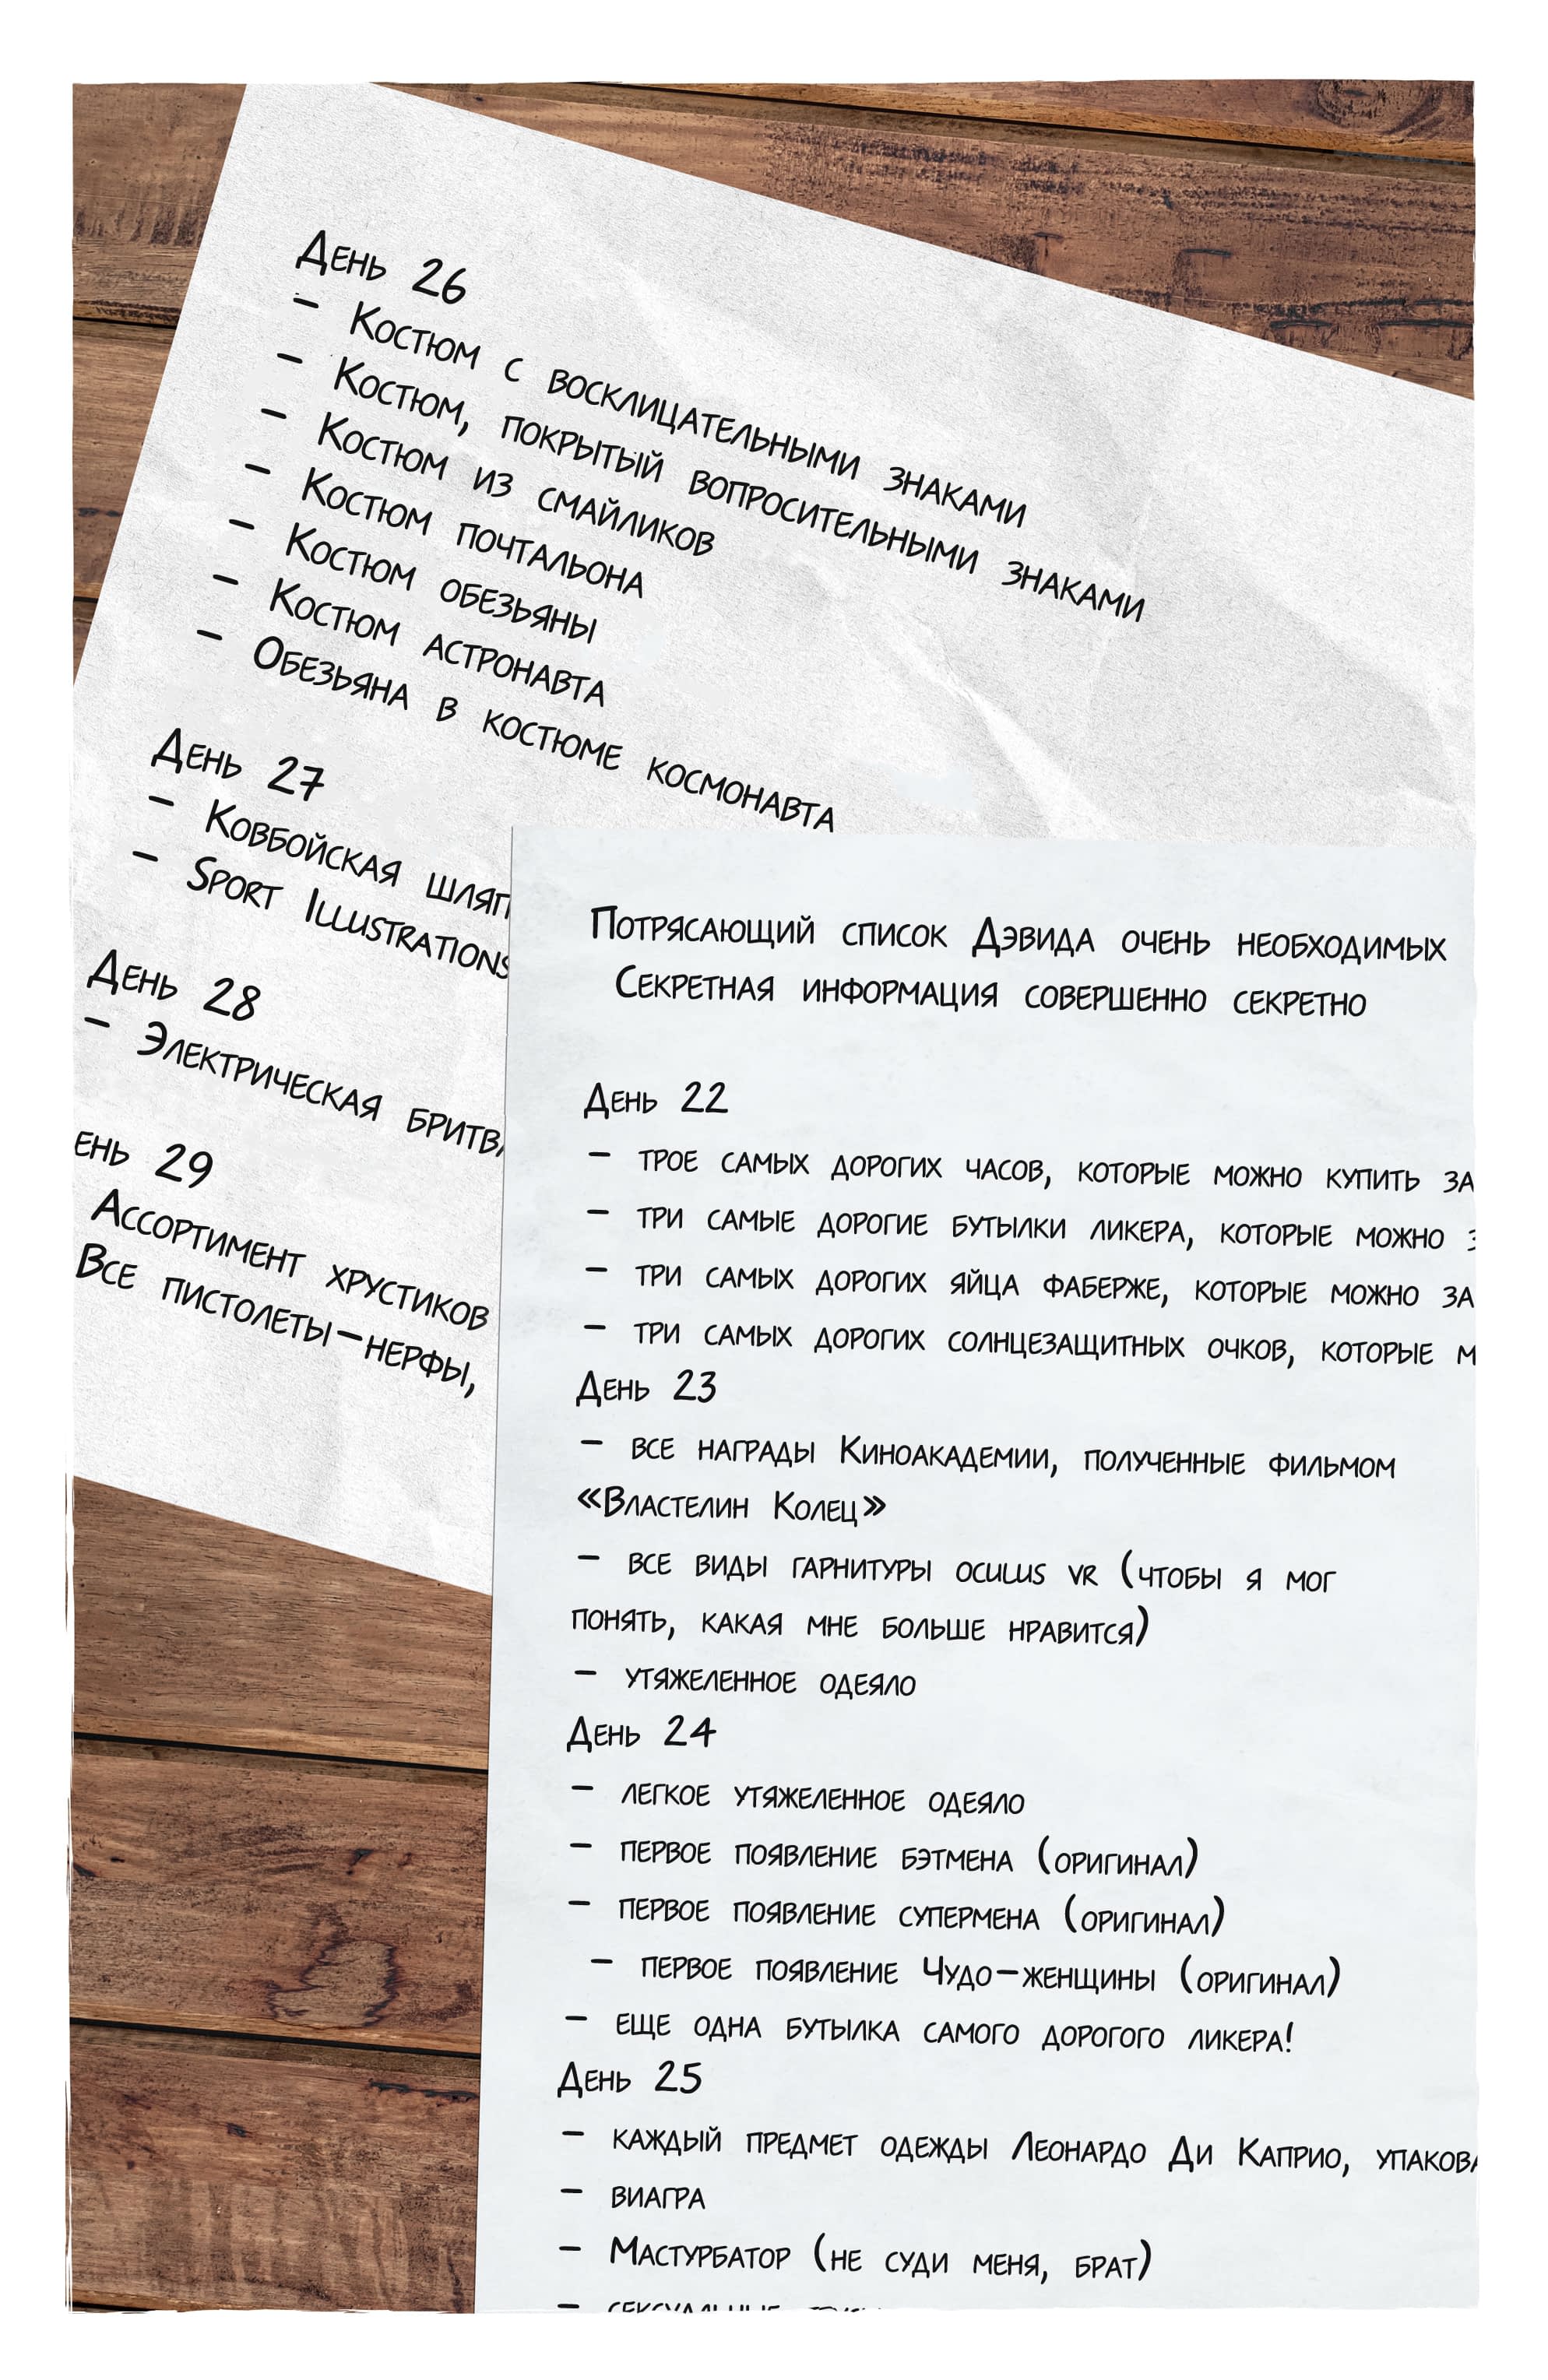 День 26
- Костюм с восклицательными знаками
- Костюм, покрытый вопросительными знаками
- Костюм из смайликов
- Костюм почтальона
- Костюм обезьяны
- Костюм астронавта
- Обезьяна в костюме космонавта
День 27
- Ковбойская шляп
- Sport Illustrations
День 28
- Электрическая бритва
ень 29
Ассортимент хрустиков
Все пистолеты-нерфы,
Потрясающий список Дэвида очень необходимых
Секретная информация совершенно секретно
День 22
- трое самых дорогих часов, которые можно купить за
- три самые дорогие бутылки ликера, которые можно
- три самых дорогих яйца фаберже, которые можно за
- три самых дорогих солнцезащитных очков, которые м
День 23
- все награды Киноакадемии, полученные фильмом
«Властелин Колец»
- все виды гарнитуры oculus vr (чтобы я мог
понять, какая мне больше нравится)
- утяжеленное одеяло
День 24
- легкое утяжеленное одеяло
- первое появление бэтмена (оригинал)
- первое появление супермена (оригинал)
- первое появление Чудо-женщины (оригинал)
- еще одна бутылка самого дорогого ликера!
День 25
- каждый предмет одежды Леонардо Ди Каприо, упакова
- виагра
- Мастурбатор (не суди меня, брат)